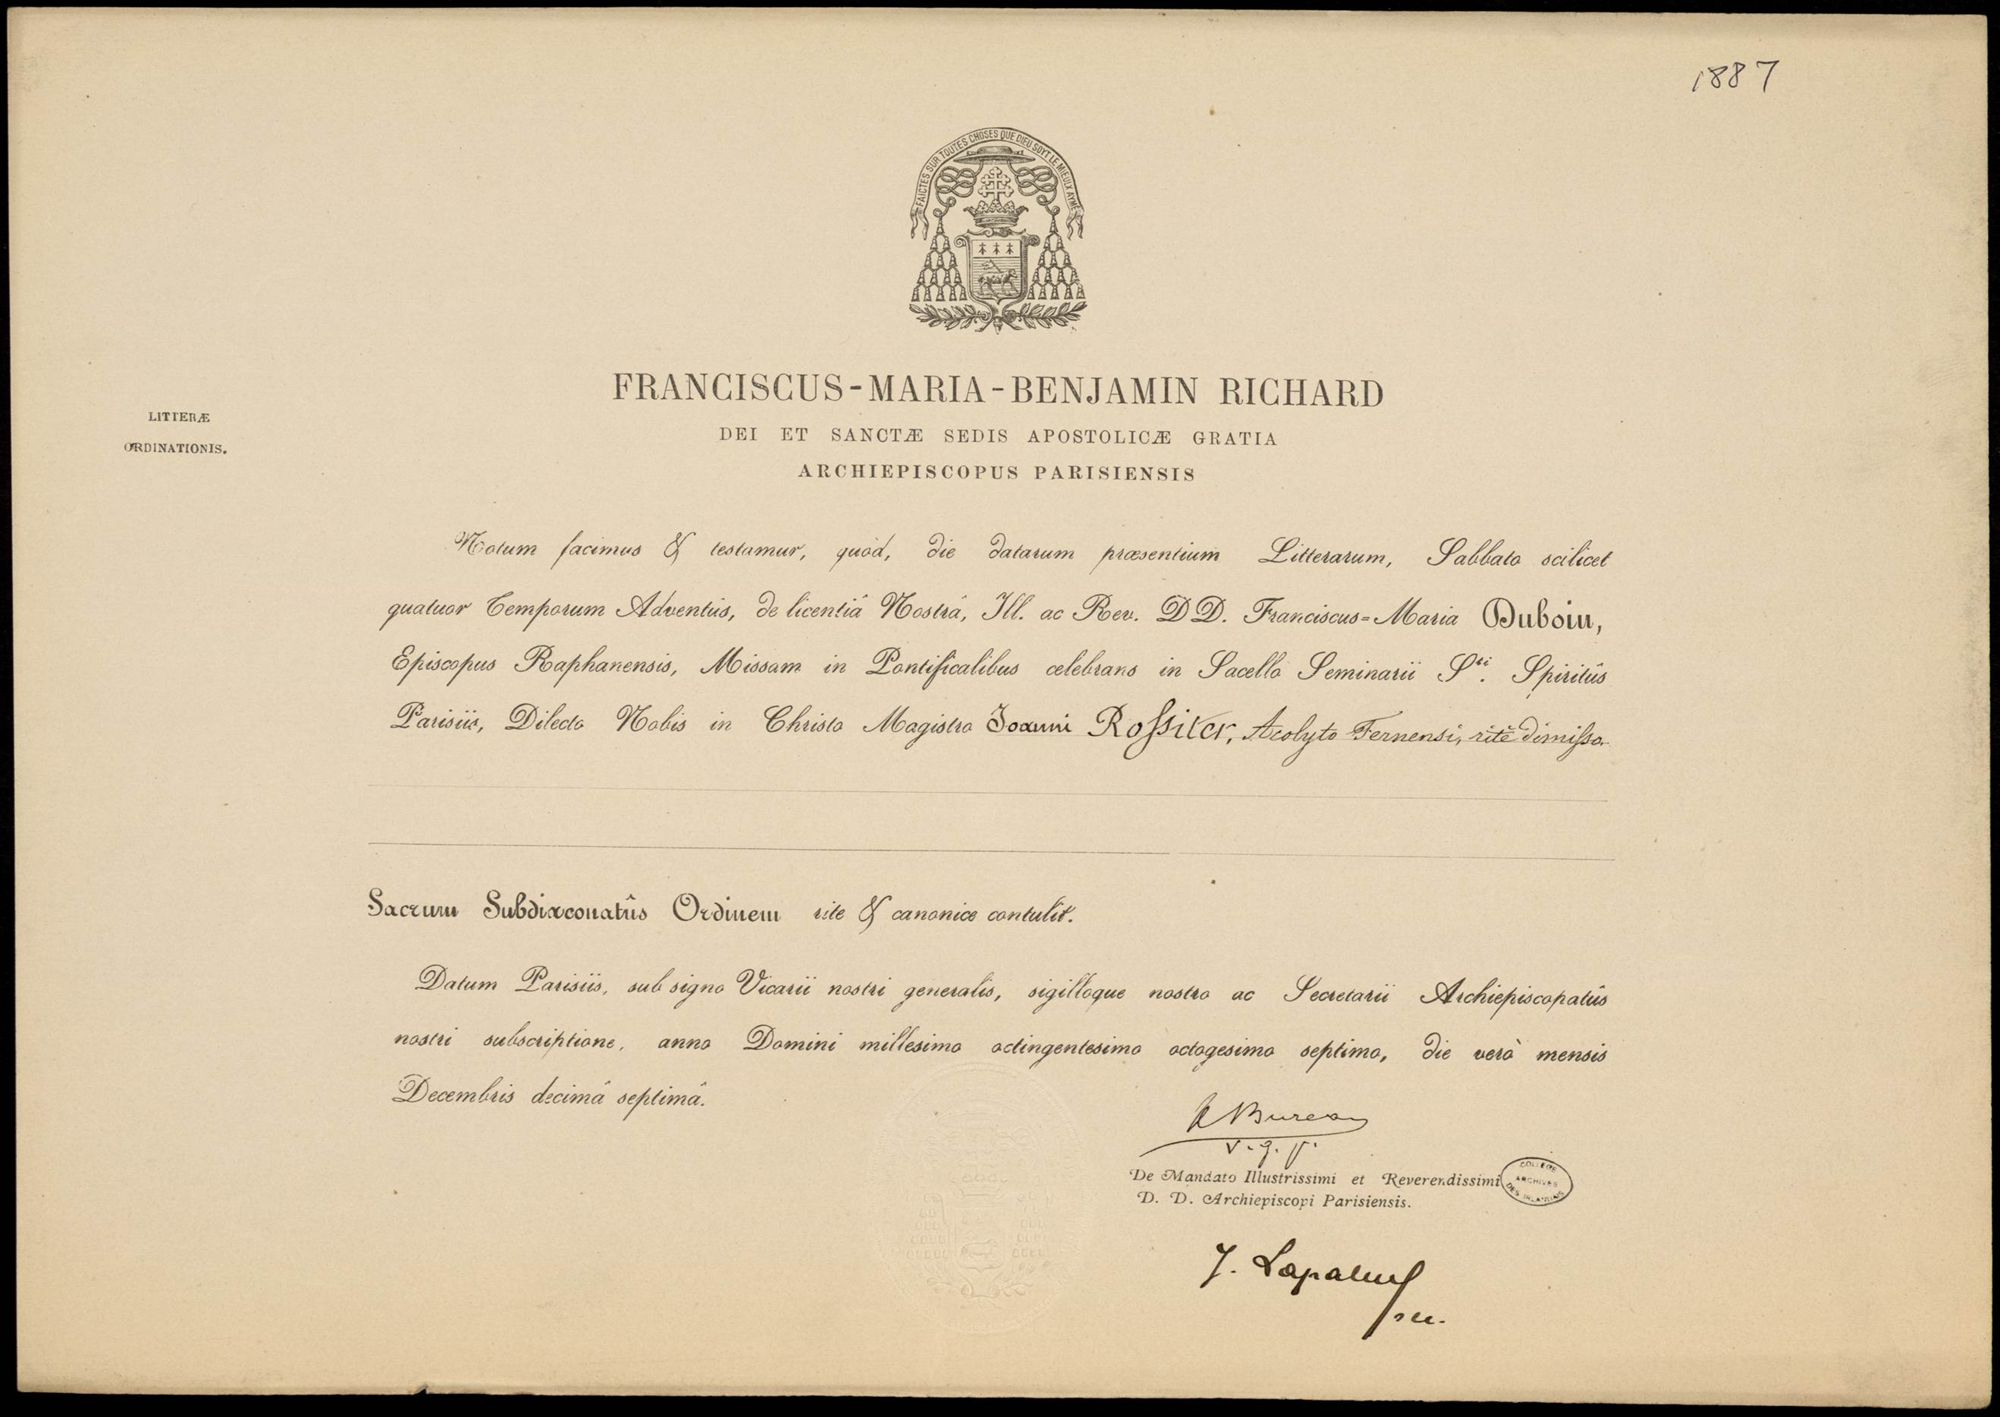 1887
FAICTES SUR TOUTES CHOSES QUE DIEU SOYT LE MIEUX AYMÉ
FRANCISCUS-MARIA-BENJAMIN RICHARD
LITTERÆ
ORDINATIONIS.
DEI ET SANCTÆ SEDIS APOSTOLICÆ GRATIA
ARCHIEPISCOPUS PARISIENSIS
Notum facimus & testamur, quòd, die datarum præsentium Litterarum, Sabbato scilicet
quatuor Temporum Adventûs, de licentiâ Nostrâ, Ill. ac Rev. DD. Franciscus=Maria Duboin,
Episcopus Raphanensis, Missam in Pontificalibus celebrans in Sacello Seminarii Sti. Spiritûs
Parisiis, Dilecto Nobis in Christo Magistro Joanni Rossiter, Acolyto Fernensi, ritè dimisso
Sacrum Subdiaconatûs Ordinem rite & canonice contulit.
Datum Parisiis, sub signo Vicarii nostri generalis, sigilloque nostro ac Secretarii Archiepiscopatûs
nostri subscriptione, anno Domini millesimo octingentesimo octogesimo septimo, die verò mensis
Decembris decimâ septimâ.
Bureau
v. g.
De Mandato Illustrissimi et Reverendissimi
D. D. Archiepiscopi Parisiensis.
COLLÈGE
ARCHIVES
DES IRLANDAIS
J.